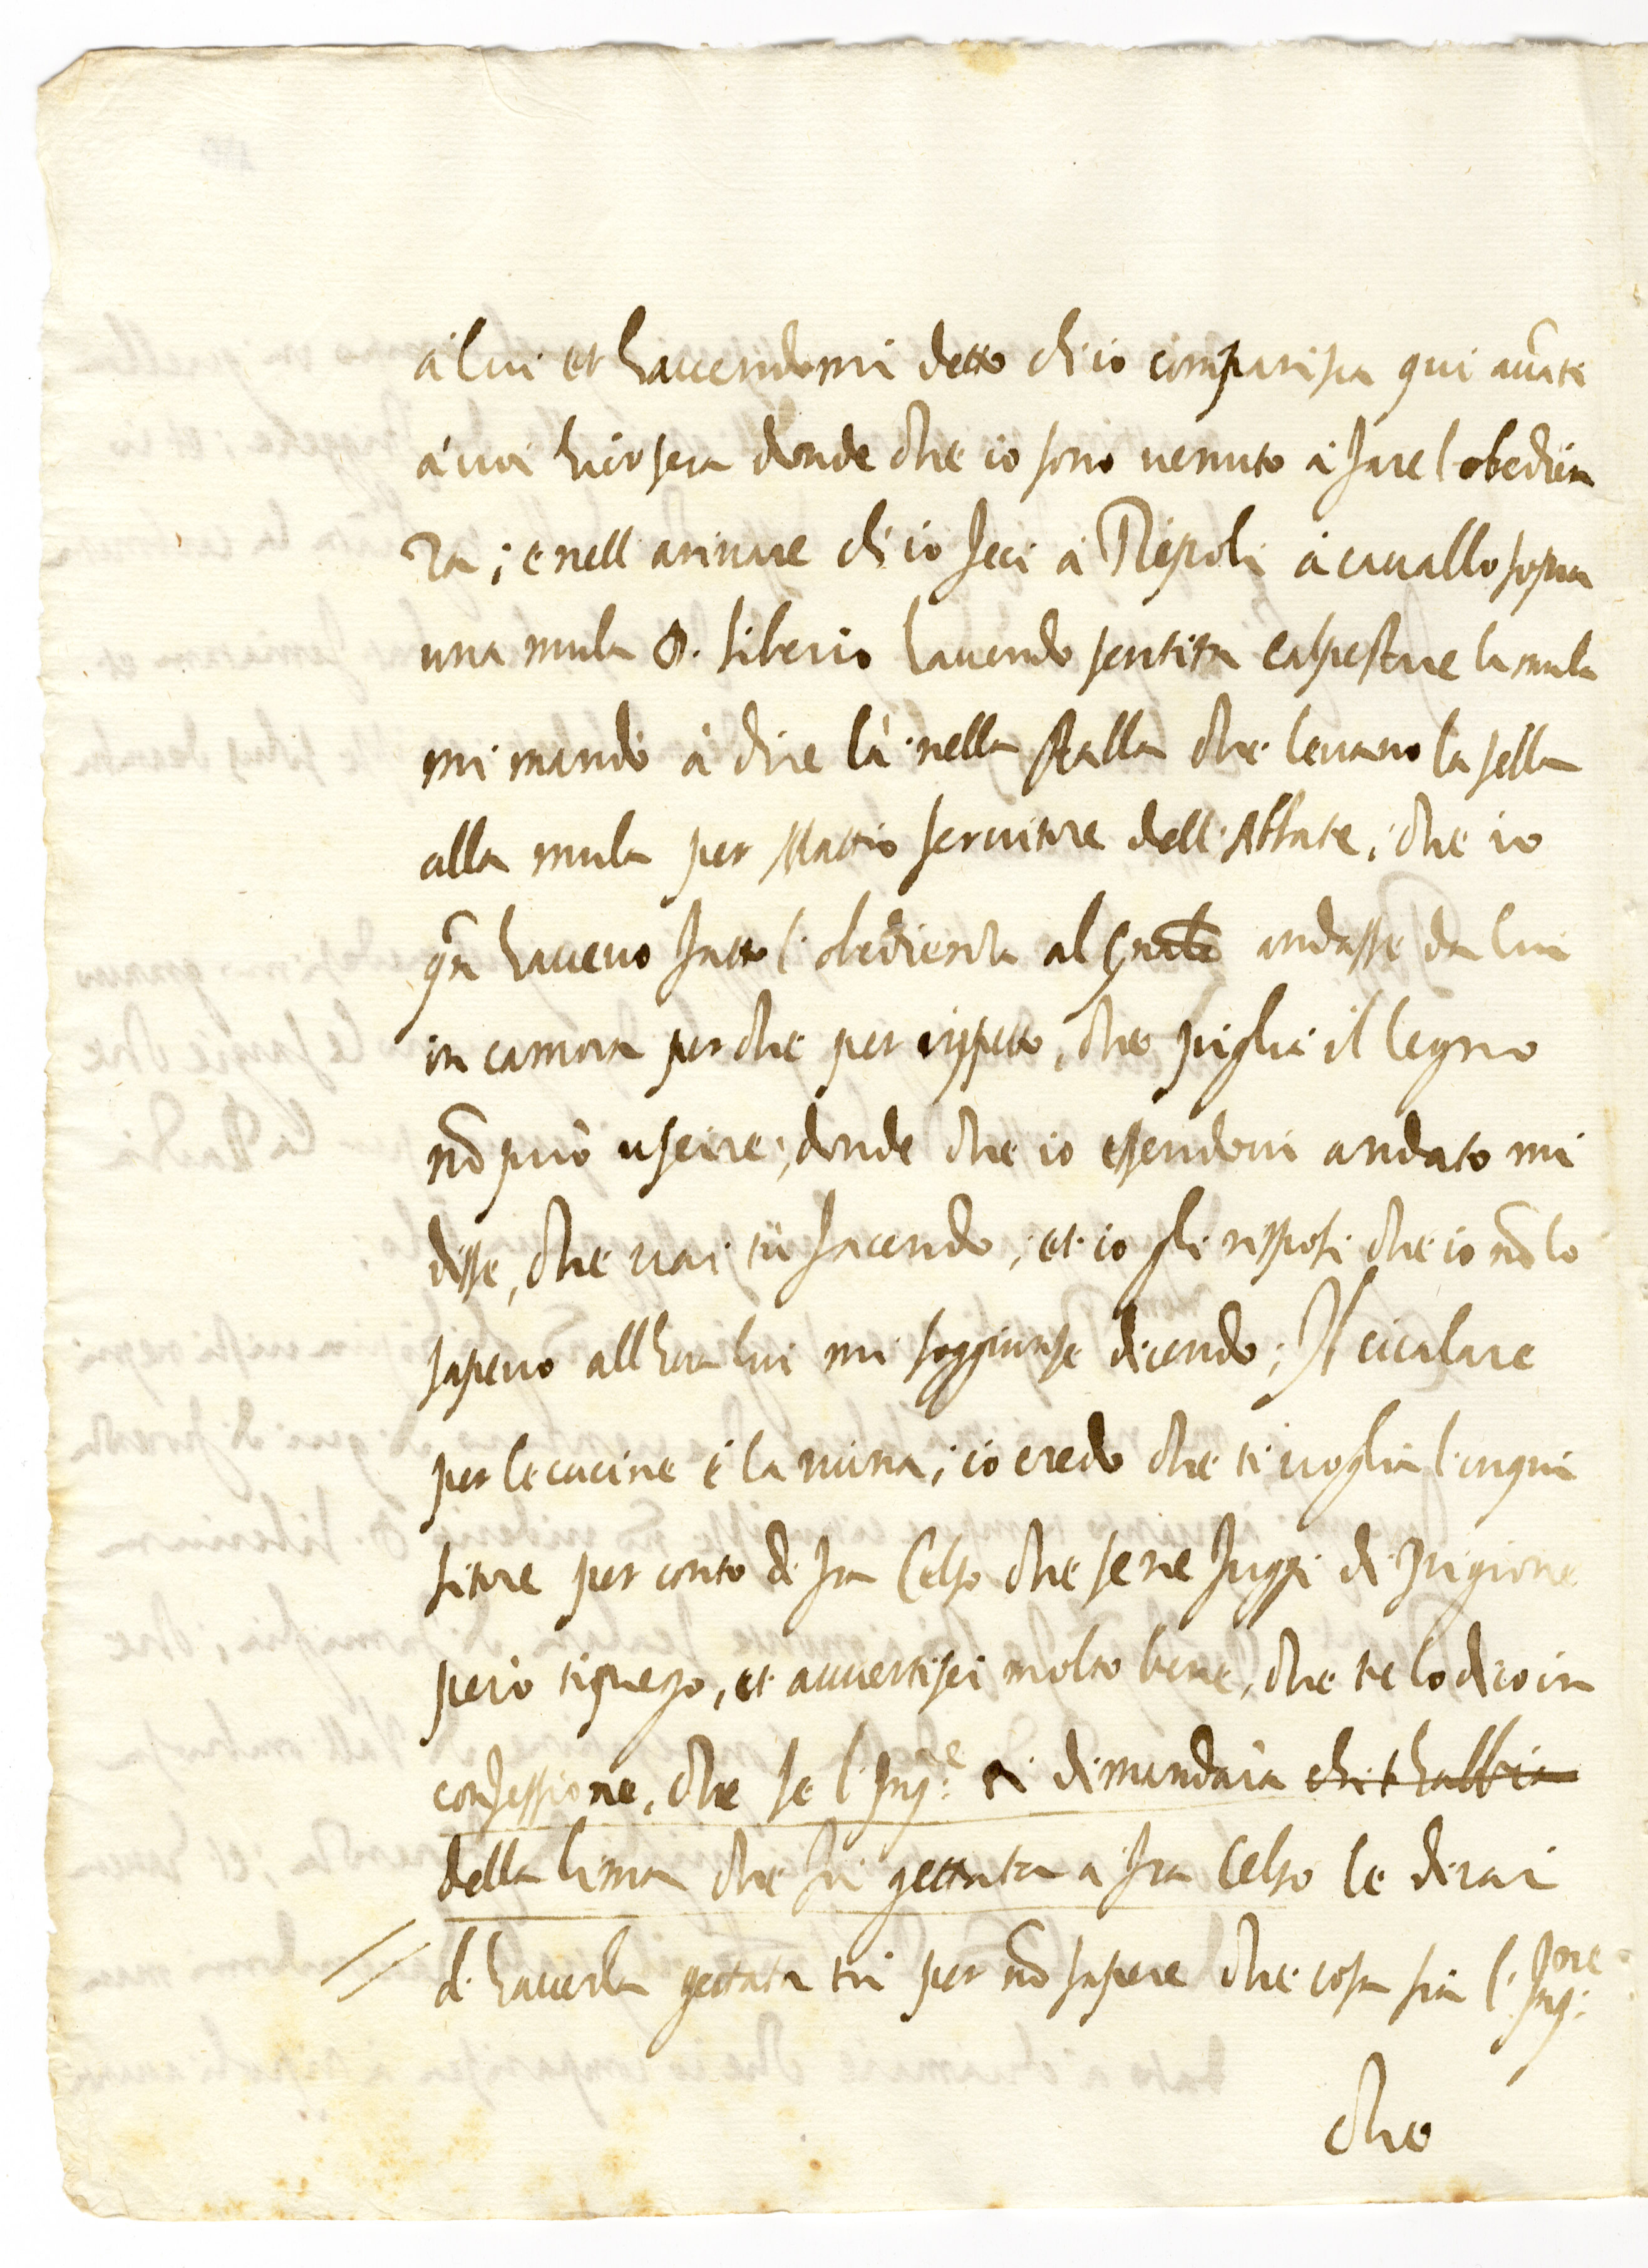 à lui et havendomi detto ch'io comparisca qui avãti
à voi hiersera donde che io sono venuto à fare l obedien
za; e nell arivare ch'io feci à Ripoli à cavallo sopra
una mula D. Tiberio havendo sentita calpestare la mula
mi mandò à dire là nella stalla che levavo la sella
alla mula per Mattio servitore dell'Abbate, che io
qñ havevo fatto l'obedienza al andasse da lui
in camora perche per rispetto, che piglia il legno
nõ può uscire; donde che io essendovi andato mi
disse, che vai tu facendo, et io gli risposi che io nõ lo
sapevo all hora lui mi soggiunse dicendo; Il cicalare
per le cucine è la ruina; io credo che ti voglia l'inqui
sitore per conto di fra Celso che se ne fuggì di prigione
però ti prego, et avvertisci molto bene, che te lo dico in
confessione, che se l'Inq:re ti dimandarà chi t'habbia
della lima che fù gettata a fra Celso le dirai
d'haverla gettata tu per nõ sapere che cosa sia l'Inq:ne
che